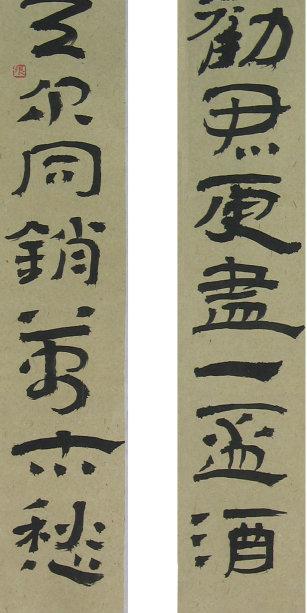 勸君更盡一盃酒
与尔同銷萬古愁